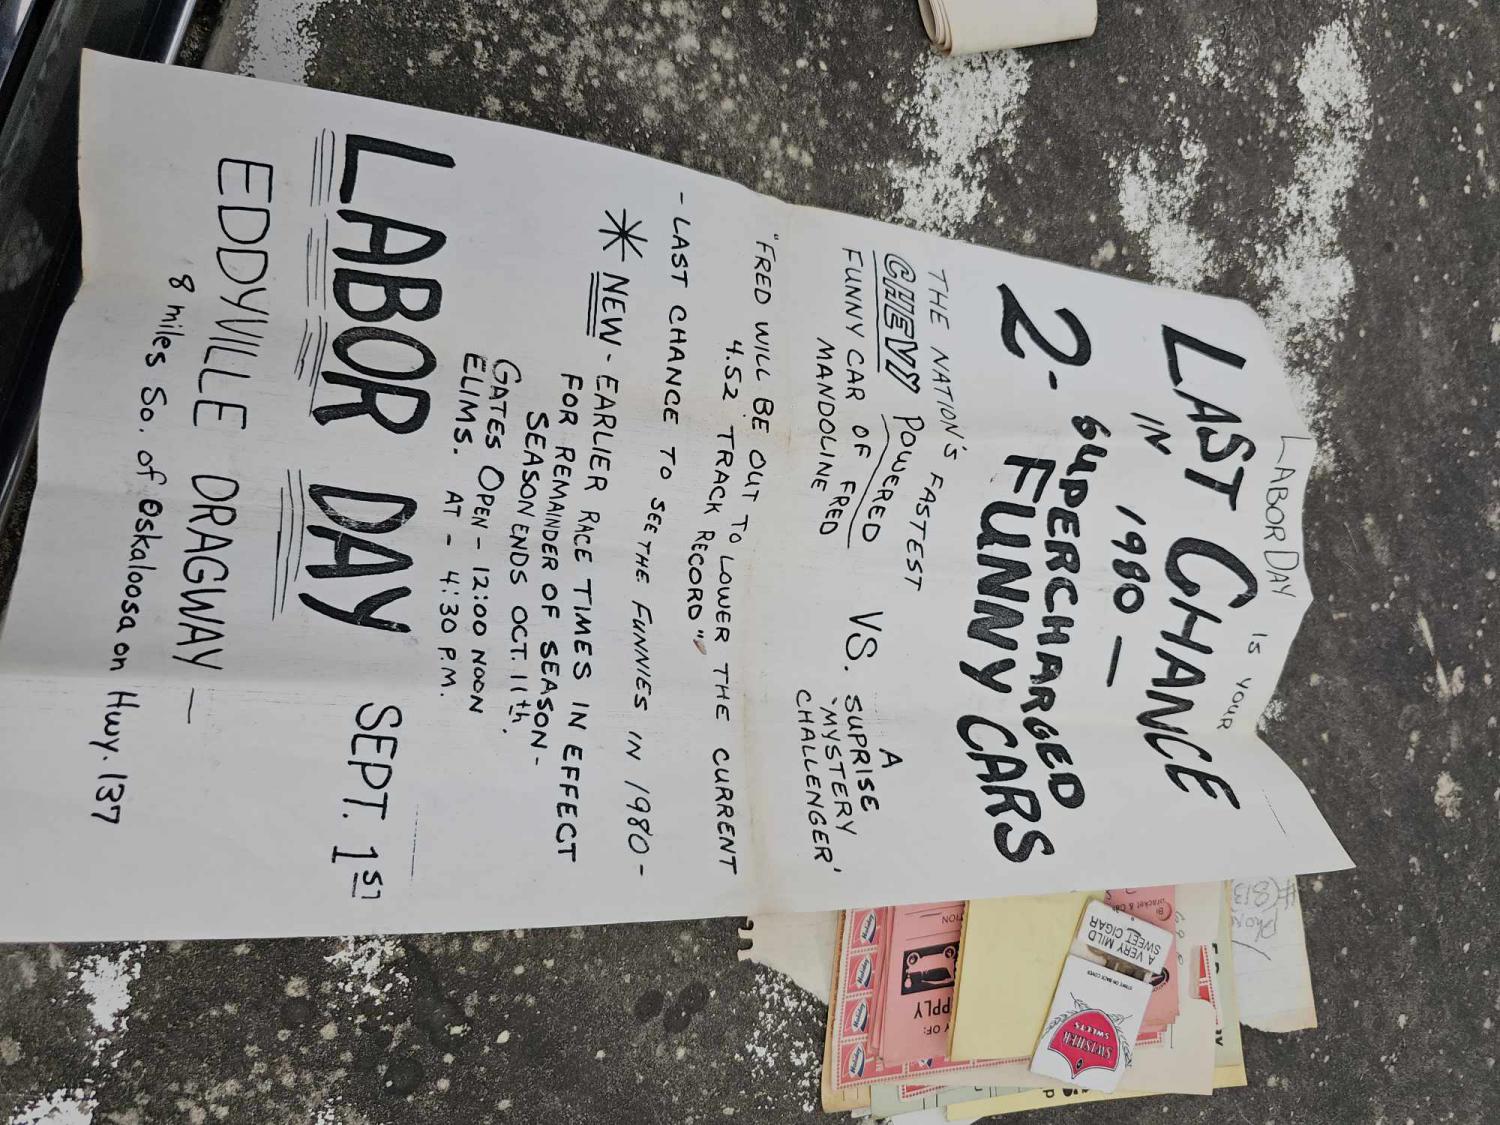 LABOR DAY IS YOUR
LAST CHANCE
IN 1980 —
2 - SUPERCHARGED
FUNNY CARS
THE NATION'S FASTEST
CHEVY POWERED
FUNNY CAR OF FRED
MANDOLINE
VS.
A
SUPRISE
'MYSTERY
CHALLENGER'
"FRED WILL BE OUT TO LOWER THE CURRENT
4.52 TRACK RECORD"
- LAST CHANCE TO SEE THE FUNNIES IN 1980 -
* NEW - EARLIER RACE TIMES IN EFFECT
FOR REMAINDER OF SEASON -
SEASON ENDS OCT. 11th.
GATES OPEN - 12:00 NOON
ELIMS. AT - 4:30 P.M.
LABOR DAY SEPT. 1ST
EDDYVILLE DRAGWAY —
8 miles So. of Oskaloosa on Hwy. 137
A VERY MILD
SWEET CIGAR
START ON BACK COVER
SWISHER
SWEETS
Holiday
Holiday
Holiday
Holiday
PPLY
Y OF:
(813)
Phone